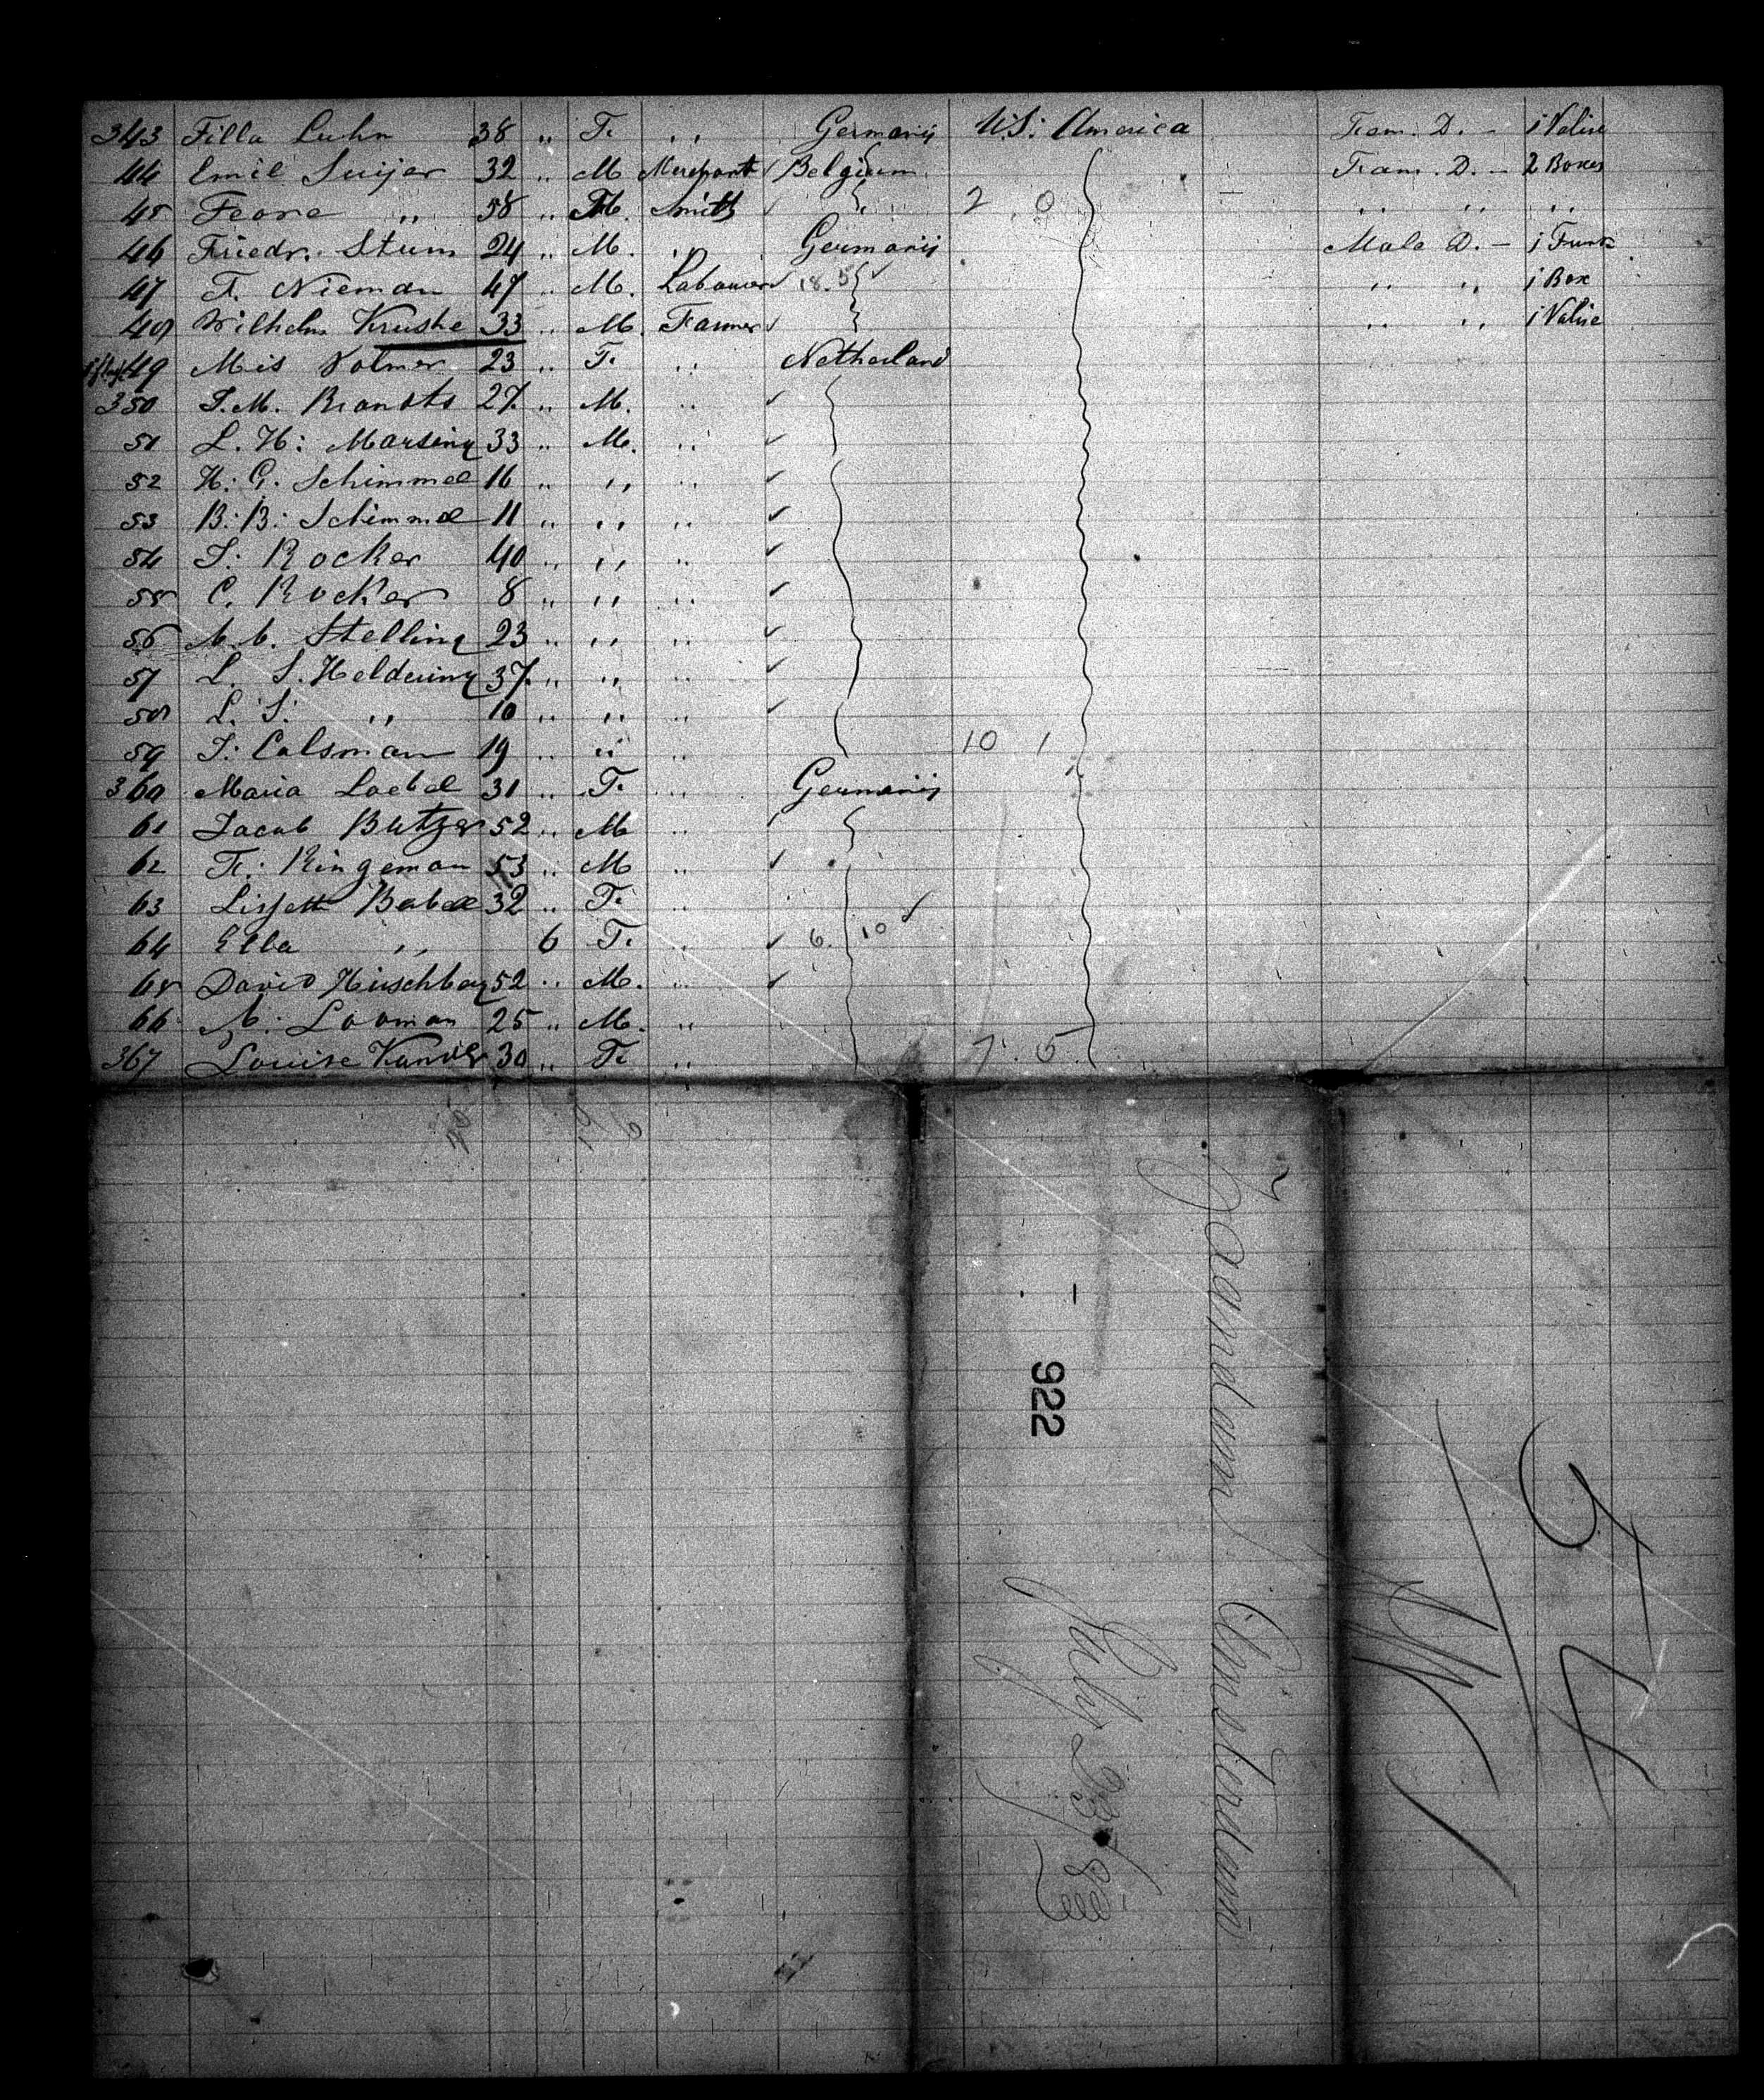 343 Filla Luhn 38 " F. " Germanij U.S: America Fam. D. - 1 Valise
44 Emil Suijer 32 " M Merchant Belgium Fam. D. - 2 Boxes
45 Feore " 58 " M. Smith 2 0 " " "
46 Friedr. Stum 24 " M. " Germanij Male D. - 1 Trunk
47 F. Nieman 47 " M. Labourer 18. 5 " " 1 Box
48 Wilhelm Kruske 33 " M. Farmer " " 1 Valise
49 Mis Volmer 23 " F. " Netherland
350 J.M. Brandts 27 " M. "
51 L. H: Marsing 33 " M. "
52 H: G. Schimmel 16 " " "
53 B: B: Schimmel 11 " " "
54 J: Rocker 40 " " "
55 C. Rocker 8 " " "
56 Stelling 23 " " "
57 L. S. Heldering 37 " " "
58 L. S. " 10 " " "
59 J: Calsman 19 " " " 10 1
360 Maria Loebel 31 " F. " Germanij
61 Jacob Butzer 52 " M "
62 Fr: Ringeman 53 " M "
63 Lissett Babel 32 " F. "
64 Ella " 6 F. " 6. 10
65 David Hirschberg 52 " M. "
66 A: Looman 25 " M. "
367 Louise 30 " F. " 7. 5
Zaandam Amsterdam
July 23/89
922